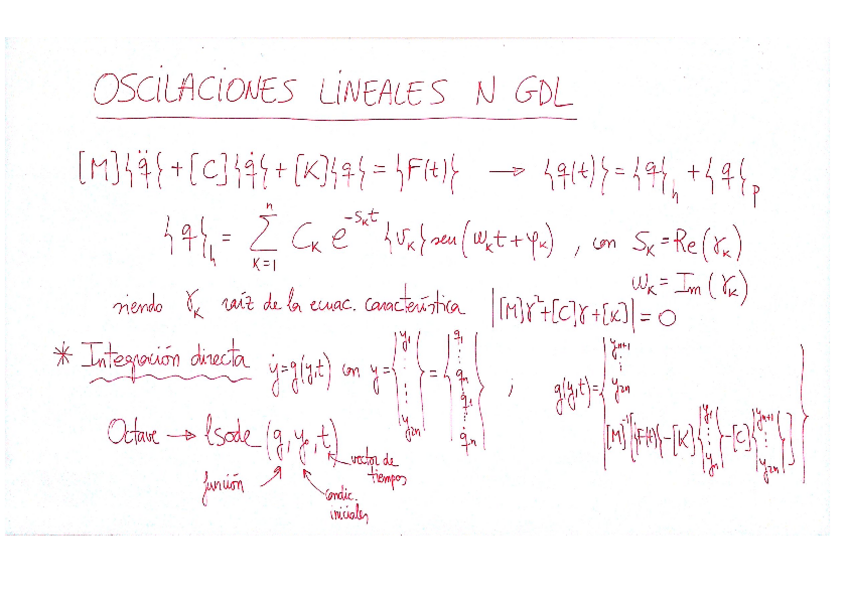 OSCILACIONES LINEALES N GDL
[M]{q̈}+[C]{q̇}+[K]{q}={F(t)} → {q(t)}={q}h + {q}p
{q}h = Σ(K=1..n) C_K e^(-S_K t) {v_K} sen(ω_K t+φ_K), con S_K=Re(γ_K)
ω_K=Im(γ_K)
siendo γ_K raíz de la ecuac. característica |[M]γ²+[C]γ+[K]|=0
* Integración directa ẏ=g(y,t) con y={y1 ⋮ ⋮ y2n}={q1 ⋮ qn q̇1 ⋮ q̇n} ; g(y,t)={yn+1 ⋮ y2n [M]⁻¹[{F(t)}-[K]{y1 ⋮ yn}-[C]{yn+1 ⋮ y2n}]}
Octave → lsode (g, y0, t)
vector de
tiempos
función
condic.
iniciales